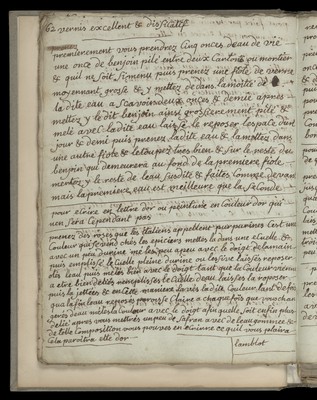 62 vernis excellent & dissicatif
premierement vous prendrez cinq onces deau de vie
une once de benjoin pilé entre deux cartons ou mortier
& quil ne soit si menu puis prenez une fiole de verre
moyennant grosse & y mettez dedans la moitié de
ladite eau a scavoir deux onces & demie apres
mettez y le dit benjoin ainsi grossierement pilé &
melé avec ladite eau laissé le reposer lespace dun
jour & demi puis prenez ladite eau & la mettez dans
une autre fiole & letoupez tres bien & sur le reste du
benjoin qui demeurera au fond de la premiere fiole
mettez y le reste de leau susdite & faites comme devant
mais la premiere eau est meilleure que la seconde
pour ecrire en lettre dor ou peinture en couleur dor qui
nen sera cependant pas
prenez des roses que les italiens appellent purpurines cest une
couleur qui se vend chés les epiciers mettez la dans une ecuelle &
avec un peu durine melez un peu avec le doigt delament
puis remplissé lecuelle pleine durine ou laissé reposer
otés leau puis melés bien avec le doigt tant que la couleur vienne
a etre bien deliés remplissés lecuelle deau laissés la reposer
puis la jettées & en cette maniere lavés ladite couleur tant de fois
qua la fin leau reposée paroisse claire a chaque fois que vous chan
gerés deau mélés la couleur avec le doigt afin quelle soit enfin plus
deliée apres vous mettrés un peu de safran avec de leau gommée &
de telle composition vous pouvez en ecrire ce quil vous plaira
cela paroitra elle dor
lamblot